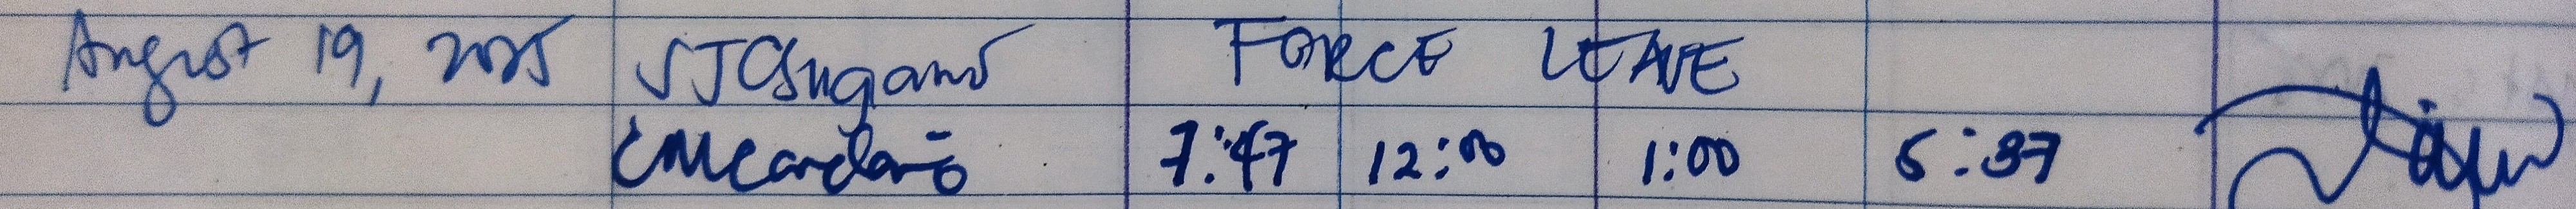 August 19, 2025 SJCSugano FORCE LEAVE
CMCandaño 7:47 12:00 1:00 5:37